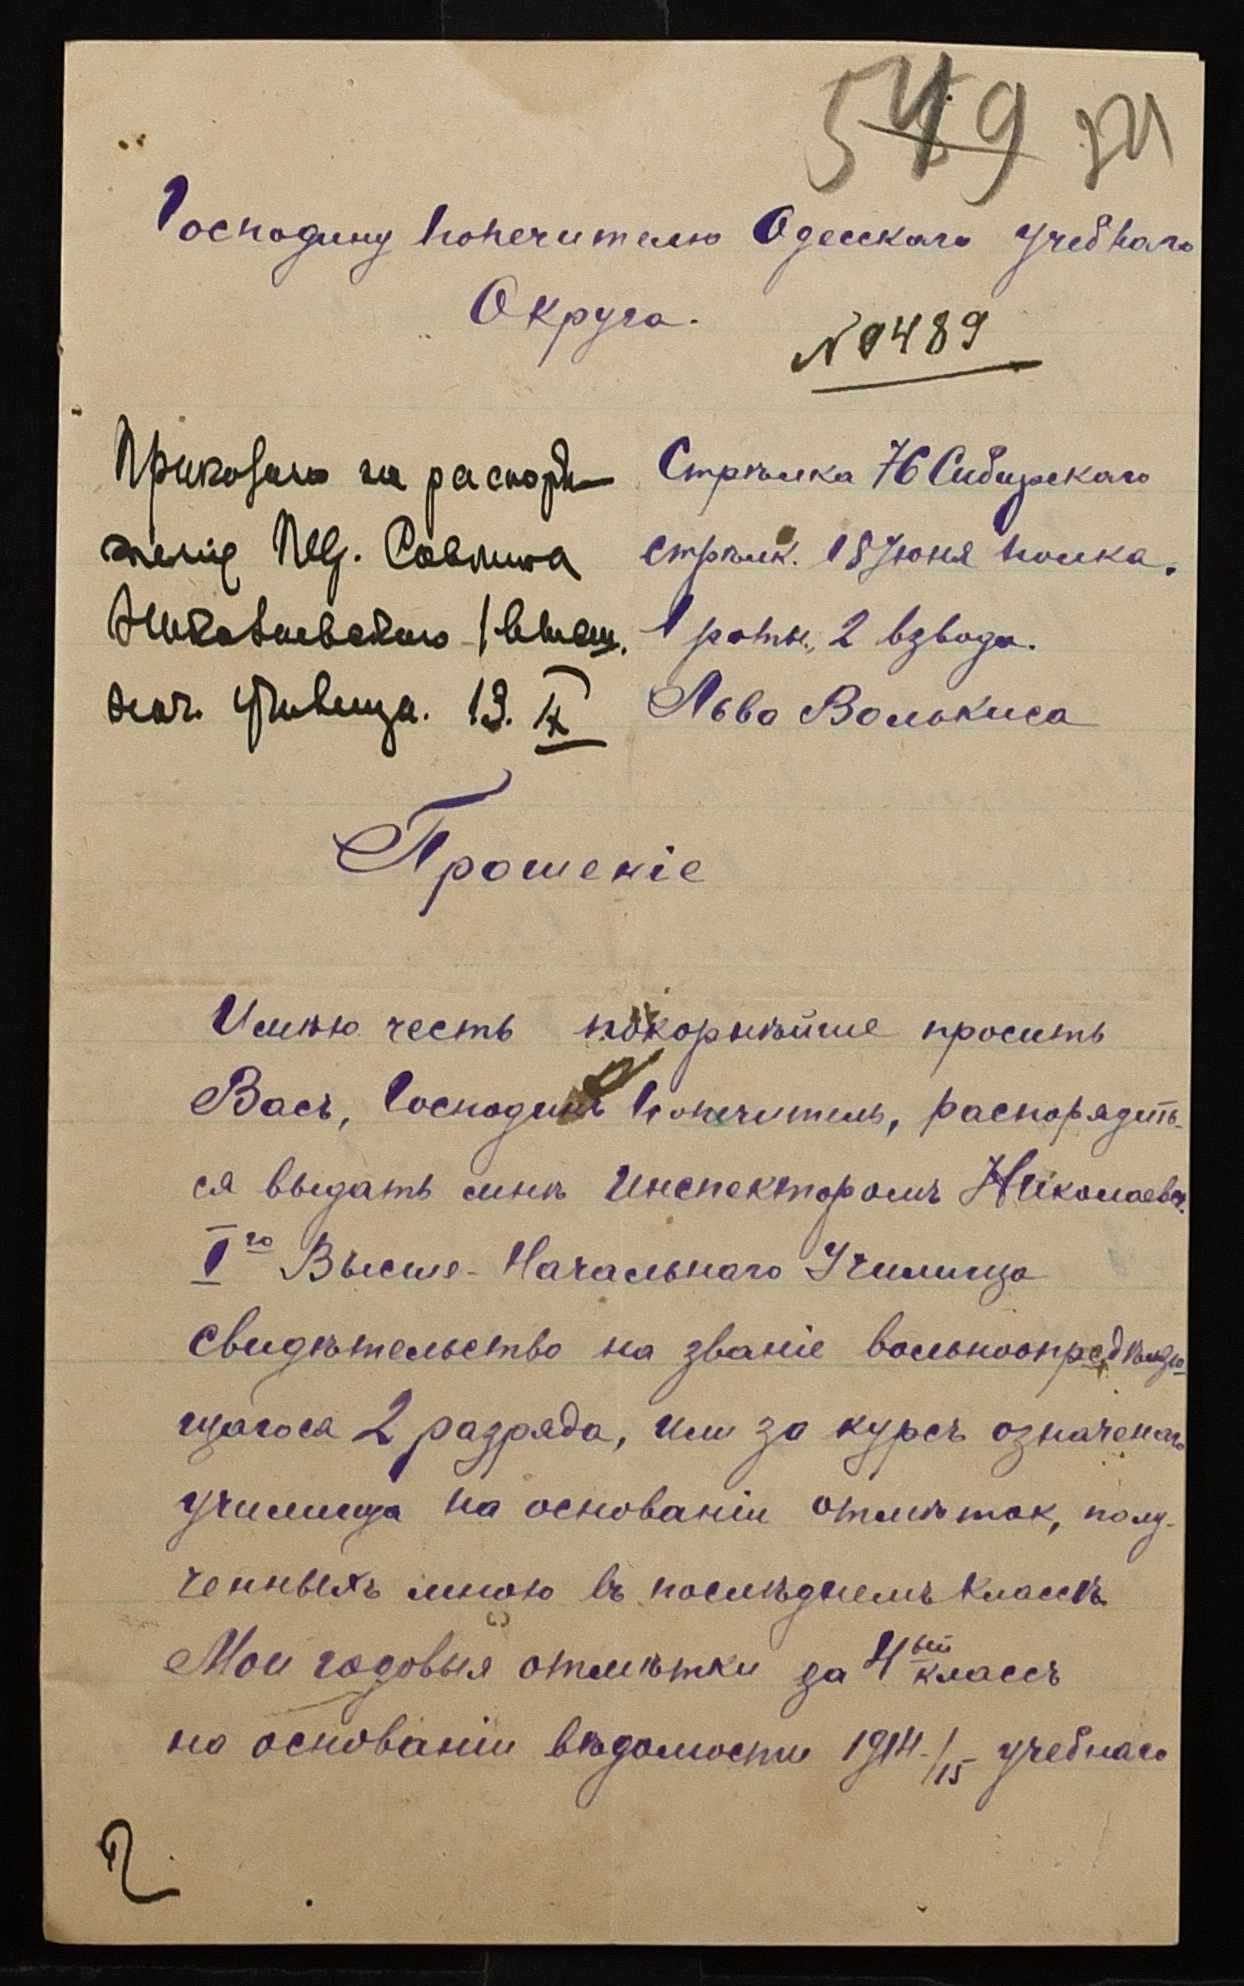 549 34
Господину Попечителю Одесскаго учебнаго
Округа.
№ 9489
на распоря-
женіе Пед. Совѣта
Николаевскаго I высш.
нач. училища. 13. IX
Стрѣлка 76 Сибирскаго
стрѣлк. 18 Іюня полка.
1 роты, 2 взвода.
Льва Волькиса
Прошеніе
Имѣю честь покорнѣйше просить
Васъ, Господинъ Попечитель, распорядить-
ся выдать мнѣ Инспекторомъ Николаевск.
I го Высше-Начальнаго Училища
свидѣтельство на званіе вольноопредѣляю-
щагося 2 разряда, или за курсъ означенаго
училища на основаніи отмѣток, полу-
ченныхъ мною въ послѣднемъ классѣ.
Мои годовыя отмѣтки за 4ый классъ
на основаніи вѣдомости 1914-/15 учебнаго
2